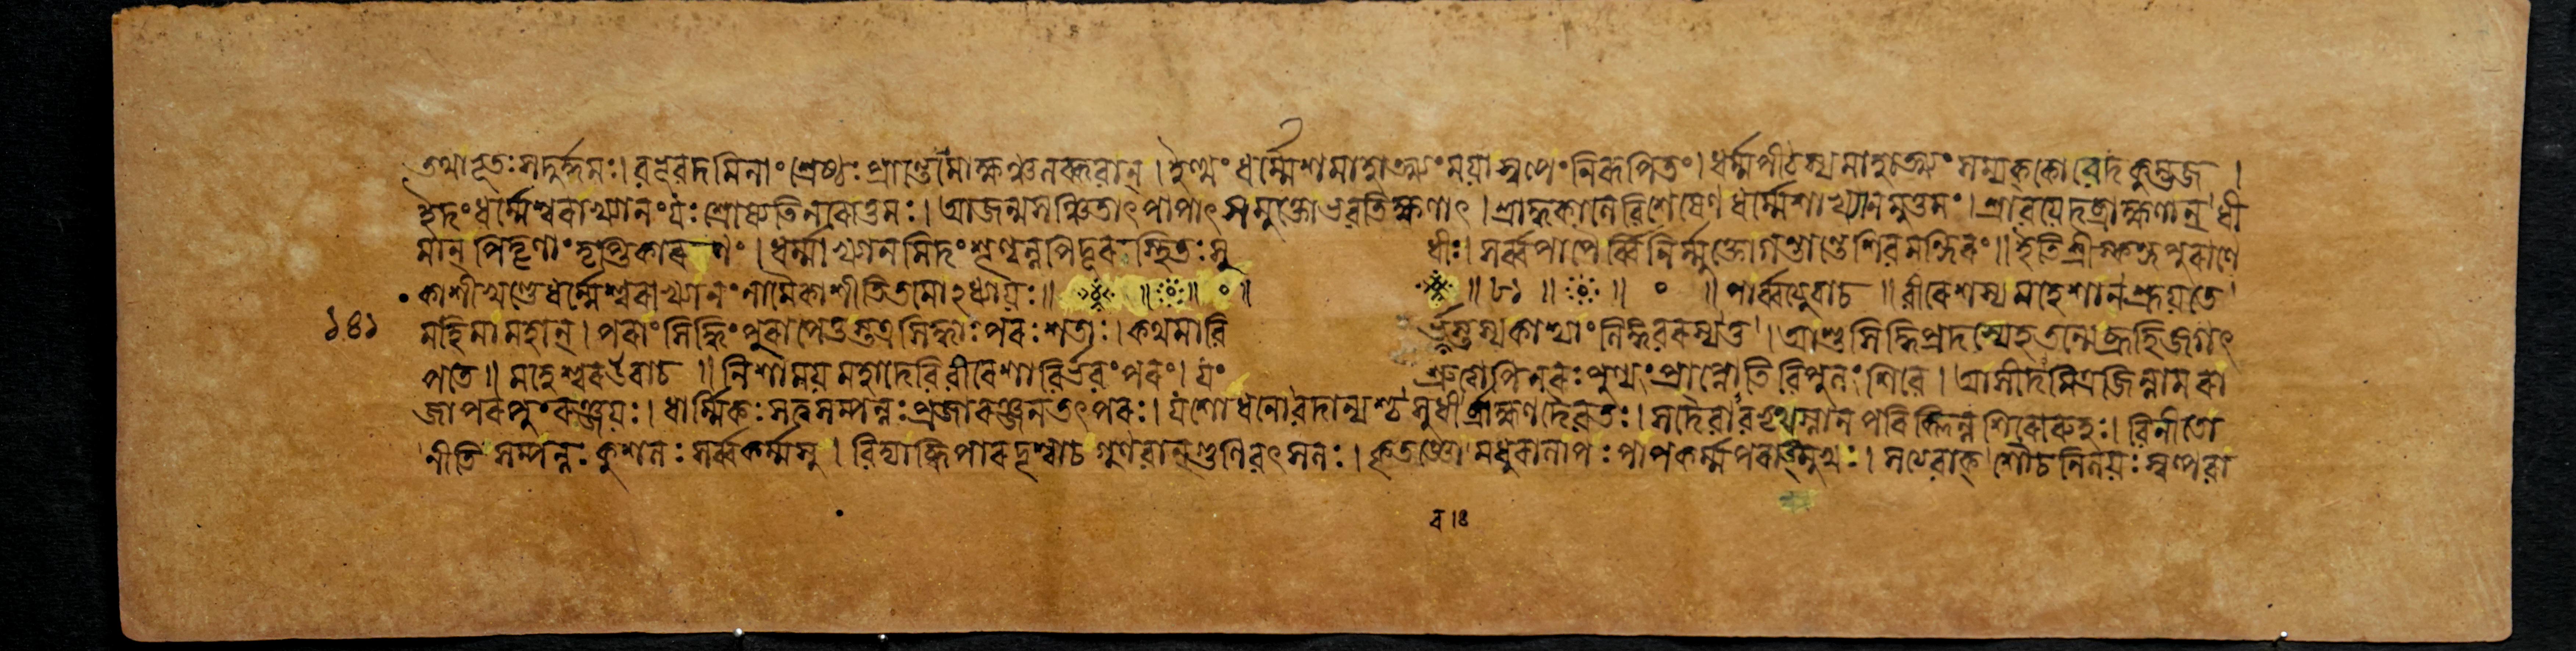 ইত্থং ধর্ম্মেশমাহাত্ম্যং ময়া স্বল্পং নিরূপিতং। ধর্ম্মপীঠস্য মাহাত্ম্যং সম্যক্ কো বেদ কুম্ভজ।
ইদং ধর্ম্মেশ্বরাখ্যানং যঃ শ্রোষ্যতি নরোত্তমঃ। আজন্মসঞ্চিতাৎ পাপাৎ স মুক্তো ভবতি ক্ষণাৎ। শ্রাদ্ধকালে বিশেষেণ ধর্ম্মেশাখ্যানমুত্তমং। শ্রাবয়েদ্ব্রাহ্মণান্ ধী
মান্ পিতৄণাং তৃপ্তিকারণং। ধর্ম্মাখ্যানমিদং শৃণ্বন্নপি দূরস্থিতঃ সু ধীঃ। সর্ব্বপাপৈর্ব্বিনির্ম্মুক্তো গন্তান্তে শিবমন্দিরং॥ ইতি শ্রীস্কন্দপুরাণে
কাশীখণ্ডে ধর্ম্মেশ্বরাখ্যানং নামৈকাশীতিতমোঽধ্যায়ঃ॥ ॥ ॥ ॥ ॥ ৮১ ॥ ॥ ॥ পার্ব্বত্যুবাচ॥ বীরেশস্য মহেশান শ্রূয়তে
১৪১ মহিমা মহান্। পরাং সিদ্ধিং পরাপেতুস্তত্র সিদ্ধাঃ পরঃশতাঃ। কথমাবি র্ভূস্তস্য কাশ্যাং লিঙ্গবরস্য তু। আশু সিদ্ধিপ্রদস্যেহ তন্মে ব্রূহি জগৎ
পতে॥ মহেশ্বর উবাচ॥ নিশাময় মহাদেবি বীরেশাবির্ভবং পরং। যং শ্রুত্বাপি নরঃ পুণ্যং প্রাপ্নোতি বিপুলং শিবে। আসীদমিত্রজিন্নাম রা
জা পরপুরঞ্জয়ঃ। ধার্ম্মিকঃ সত্বসম্পন্নঃ প্রজারঞ্জনতৎপরঃ। যশোধনো বদান্যশ্চ সুধীর্ব্রাহ্মণদৈবতঃ। সদৈবাবভৃথস্নানপরিক্লিন্নশিরোরুহঃ। বিনীতো
নীতিসম্পন্নঃ কুশলঃ সর্ব্বকর্ম্মসু। বিদ্যাব্ধিপারদৃশ্বা চ গুণবান্ গুণিবৎসলঃ। কৃতজ্ঞো মধুরালাপঃ পাপকর্ম্মপরাঙ্মুখঃ। সত্যবাক্ শৌচনিলয়ঃ স্বল্পবা